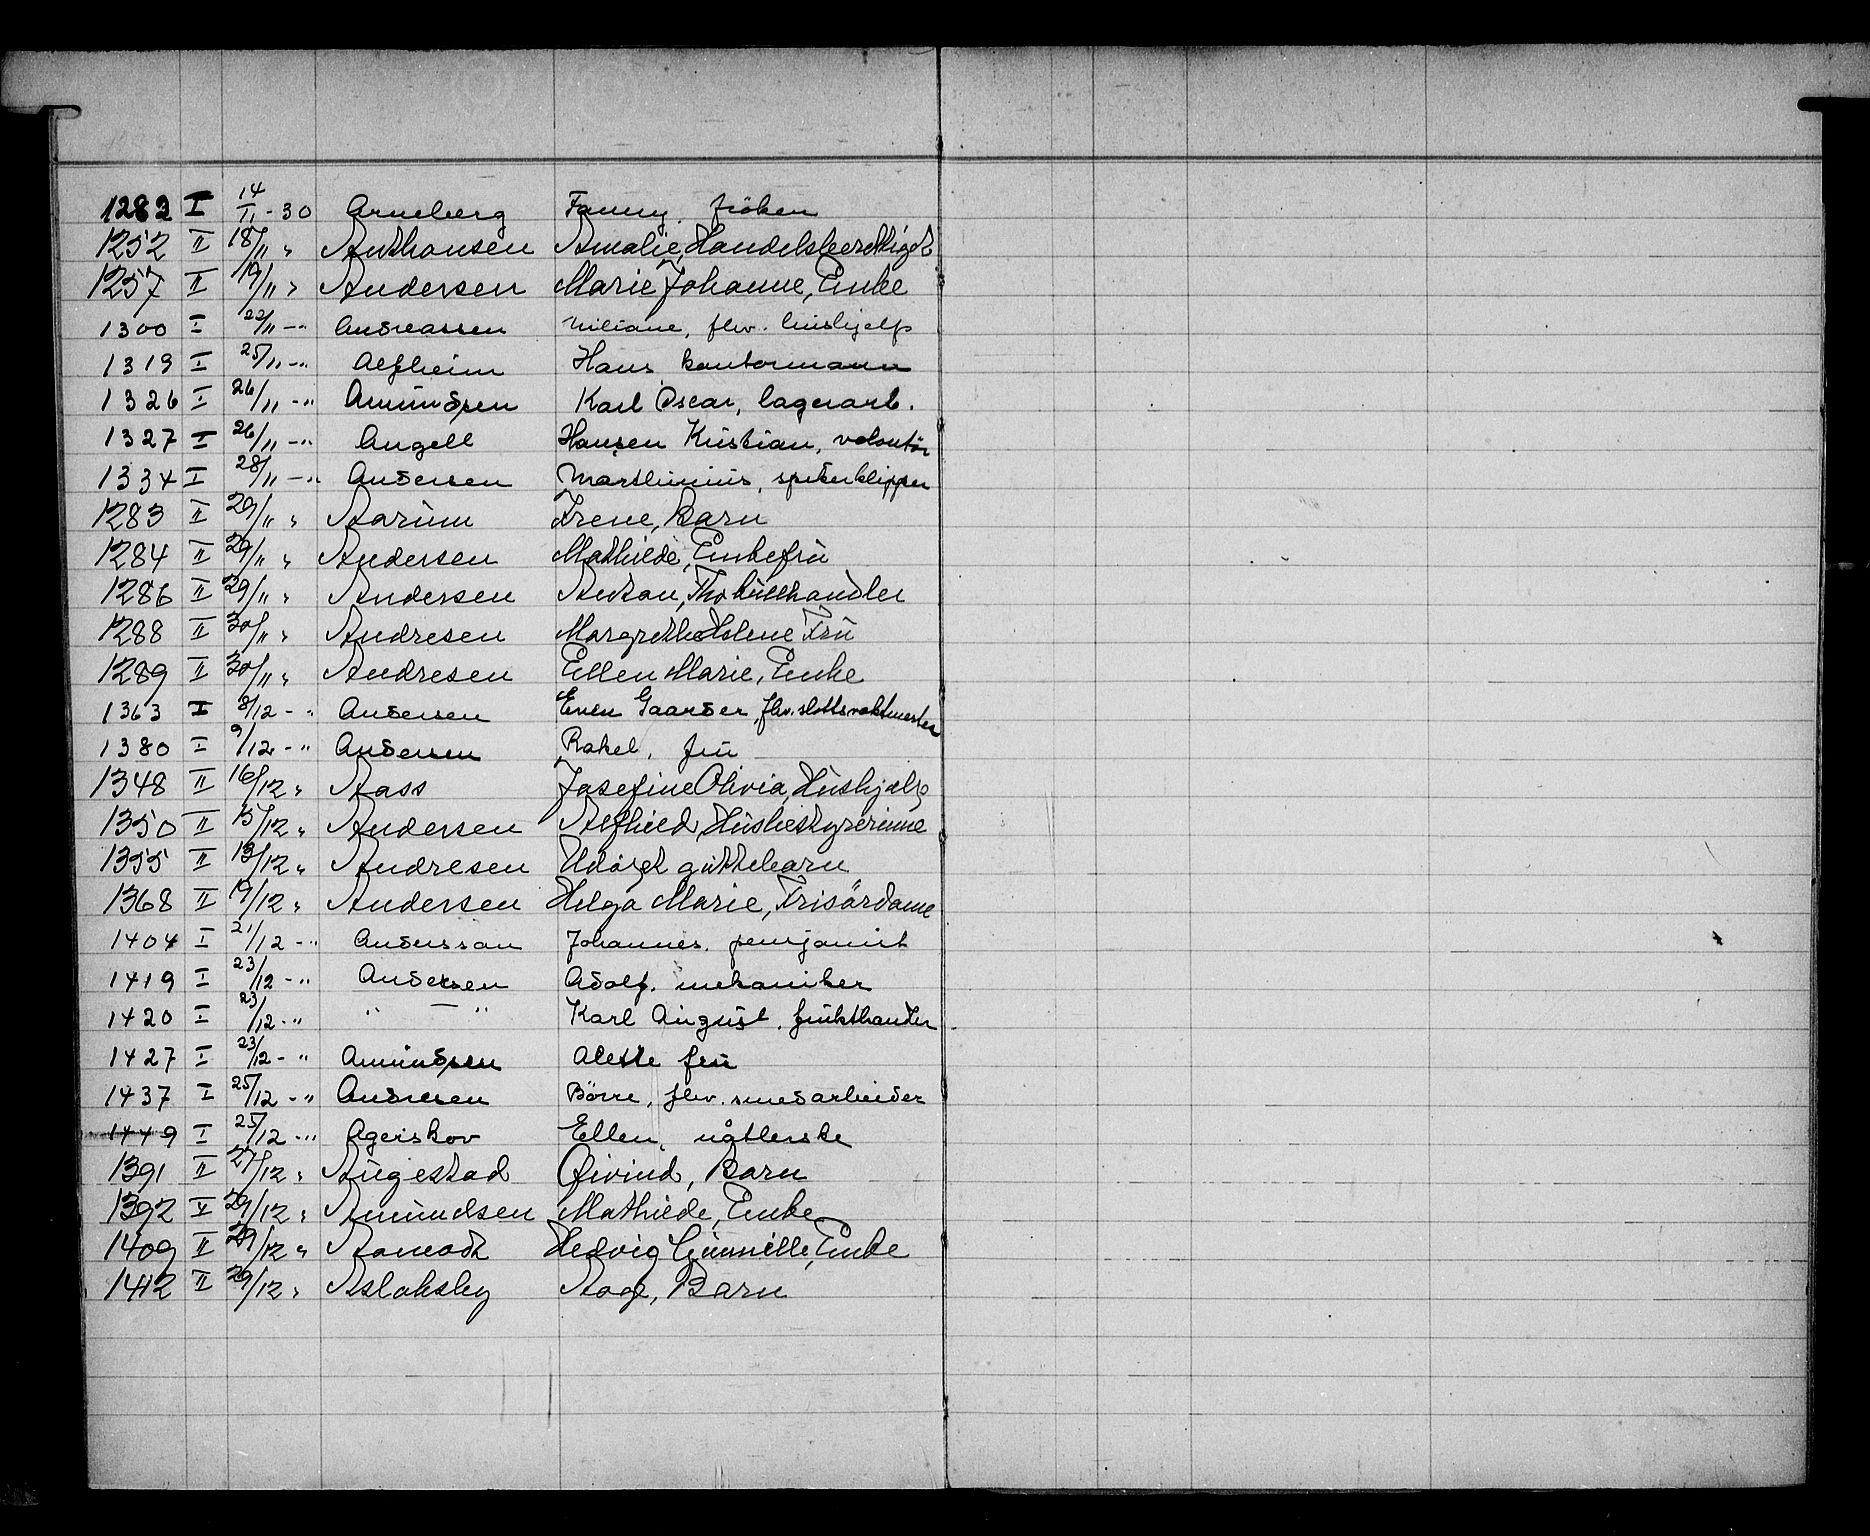 1282 I 14/11 - 30 Arneberg Fanny. fröken
1252 II 18/11 " Anthonsen Amalie, Handelsberettiget
1257 II 19/11 " Andersen Marie Johanne, Enke
1300 I 22/11 -" Andreassen fhv. hushjelp
1319 I 25/11 -" Alfheim Hans kontormann
1326 I 26/11 -" Amundsen Karl Oscar, lagerarb.
1327 I 26/11 -" Angell Hansen Kristian, volontör
1334 I 28/11 -" Andersen Marthinius, spikerklipper
1283 II 29/11 " Aarum Irene, Barn
1284 II 29/11 " Andersen Mathilde, Enkefru
1286 II 29/11 " Andersen Anton, Fhv kullhandler
1288 II 30/11 " Andresen Margrethe Helene Fru
1289 II 30/11 " Andresen Ellen Marie, Enke
1363 I 8/12 - " Andersen Even Gaarder, fhv. slottsvaktmester
1380 I 9/12 -" Andersen Rakel, fru
1348 II 16/12 " Aass Josefine Olivia, Hushjelp
1350 II 15/12 " Andersen Alfhild, Husbestyrerinne
1355 II 13/12 " Andresen Udöpt guttebarn
1368 II 19/12 " Andersen Helga Marie, Frisördame
1404 I 21/12 -" Andersson Johannes. pensjonist
1419 I 23/12 -" Andersen Adolf. mekaniker
1420 I 23/12 -" " — " Karl August, frukthandler
1427 I 23/12 - " Amundsen Alette fru
1437 I 25/12 -" Andresen Börre, fhv. smedarbeider
1449 I 25/12 -" Agerskov Ellen, nåtlerske
1391 II 27/12 " Augestad Öivind, Barn
1392 II 29/12 " Amundsen Mathilde, Enke
1409 II 29/12 " Aamodt Hedvig Gunnille, Enke
1412 II 29/12 " Aslaksby Aage, Barn